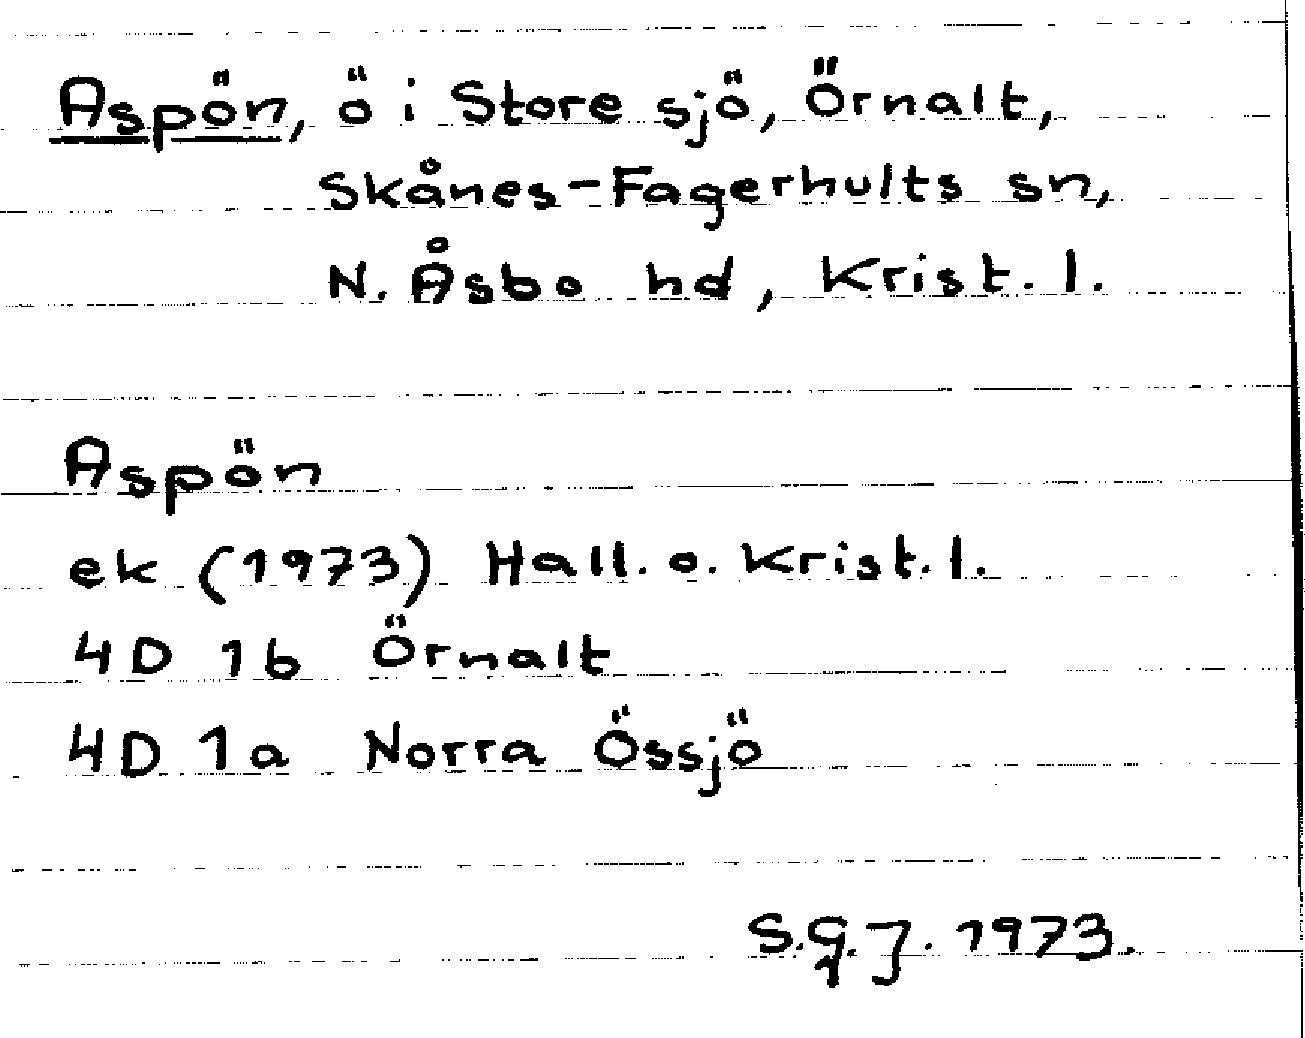 Aspön, ö i Store sjö, Örnalt,
Skånes-Fagerhults sn,
N. Åsbo hd, Krist. l.
Aspön
ek (1973) Hall. o. Krist. l.
4D 1b Örnalt
4D 1a Norra Össjö
S.G.J. 1973.